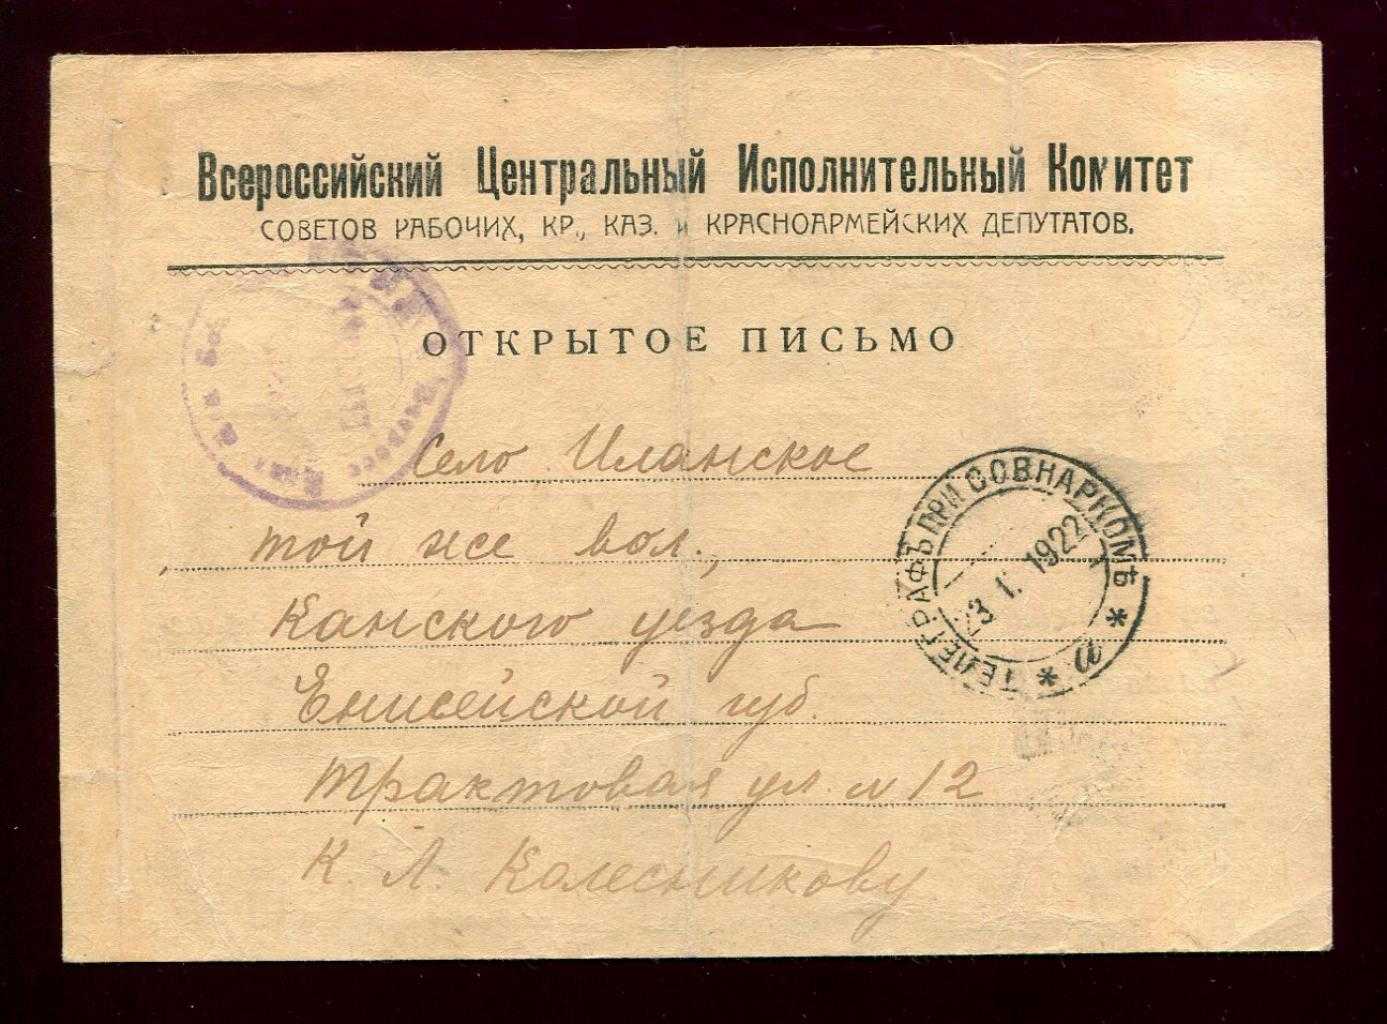 Всероссийский Центральный Исполнительный Комитет
СОВЕТОВ РАБОЧИХ, КР., КАЗ. и КРАСНОАРМЕЙСКИХ ДЕПУТАТОВ.
ОТКРЫТОЕ ПИСЬМО
Село Иланское
той же вол.,
Канского уезда
Енисейской губ.
Трактовая ул. N 12
К. Л. Колесникову
ТЕЛЕГРАФЪ ПРИ СОВНАРКОМѢ * а *
23 1. 1922